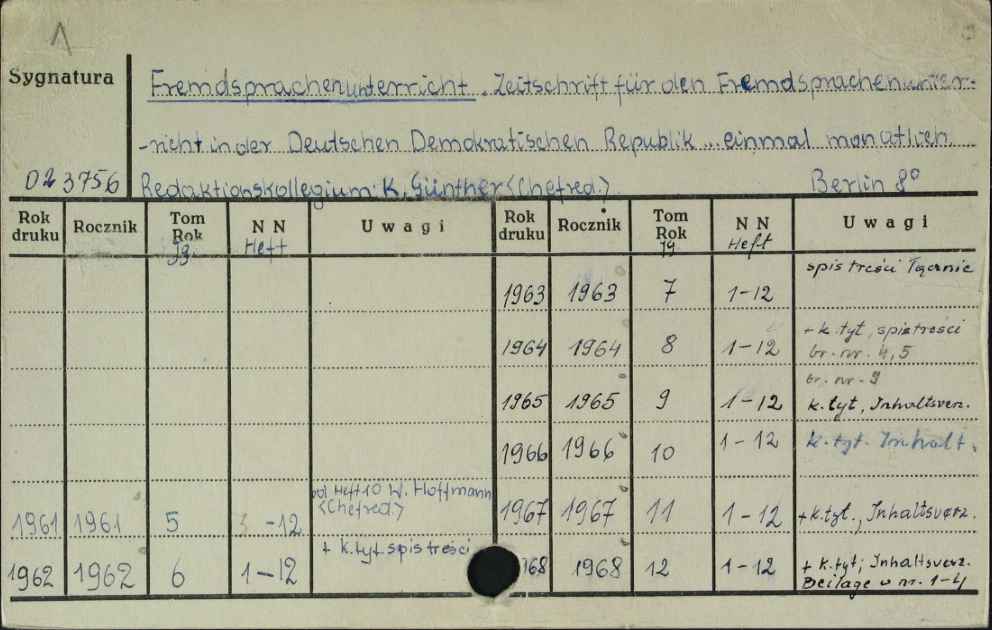 1
Sygnatura
Fremdsprachenunterricht. Zeitschrift für den Fremdsprachenunter-
-richt in der Deutschen Demokratischen Republik ... einmal monatlich
023756 Redaktionskollegium: K. Günther <Chefred.> Berlin 8°
Rok druku Rocznik Tom Rok Jg. NN Heft Uwagi Rok druku Rocznik Tom Rok Jg. NN Heft Uwagi
1963 1963 7 1-12 spis treści łącznie
1964 1964 8 1-12 + k. tyt, spis treści
br. nr. 4,5
1965 1965 9 1-12 br. nr. 9
k. tyt, Inhaltsverz.
1966 1966 10 1-12 k. tyt. Inhalt.
1961 1961 5 -12 Heft 10 W. Hoffmann
<Chefred.>
1967 1967 11 1-12 + k. tyt., Inhaltsverz.
1962 1962 6 1-12 + k. tyt. spis treści
968 1968 12 1-12 + k. tyt; Inhaltsverz.
Beilage u nr. 1-4